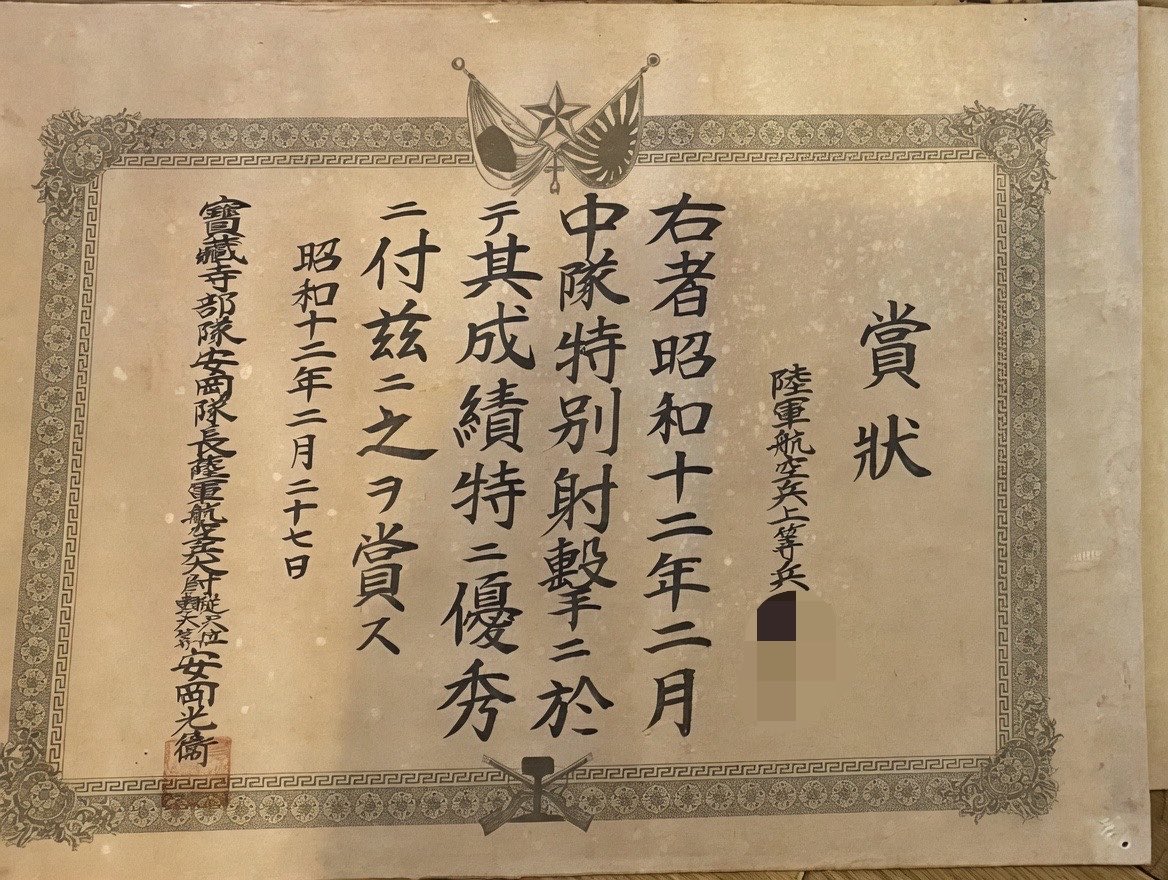 賞狀
陸軍航空兵上等兵
右者昭和十二年二月
中隊特別射撃ニ於
テ其成績特ニ優秀
ニ付茲ニ之ヲ賞ス
昭和十二年二月二十七日
寶藏寺部隊安岡隊長陸軍航空兵大尉從六位勲六等安岡光衞